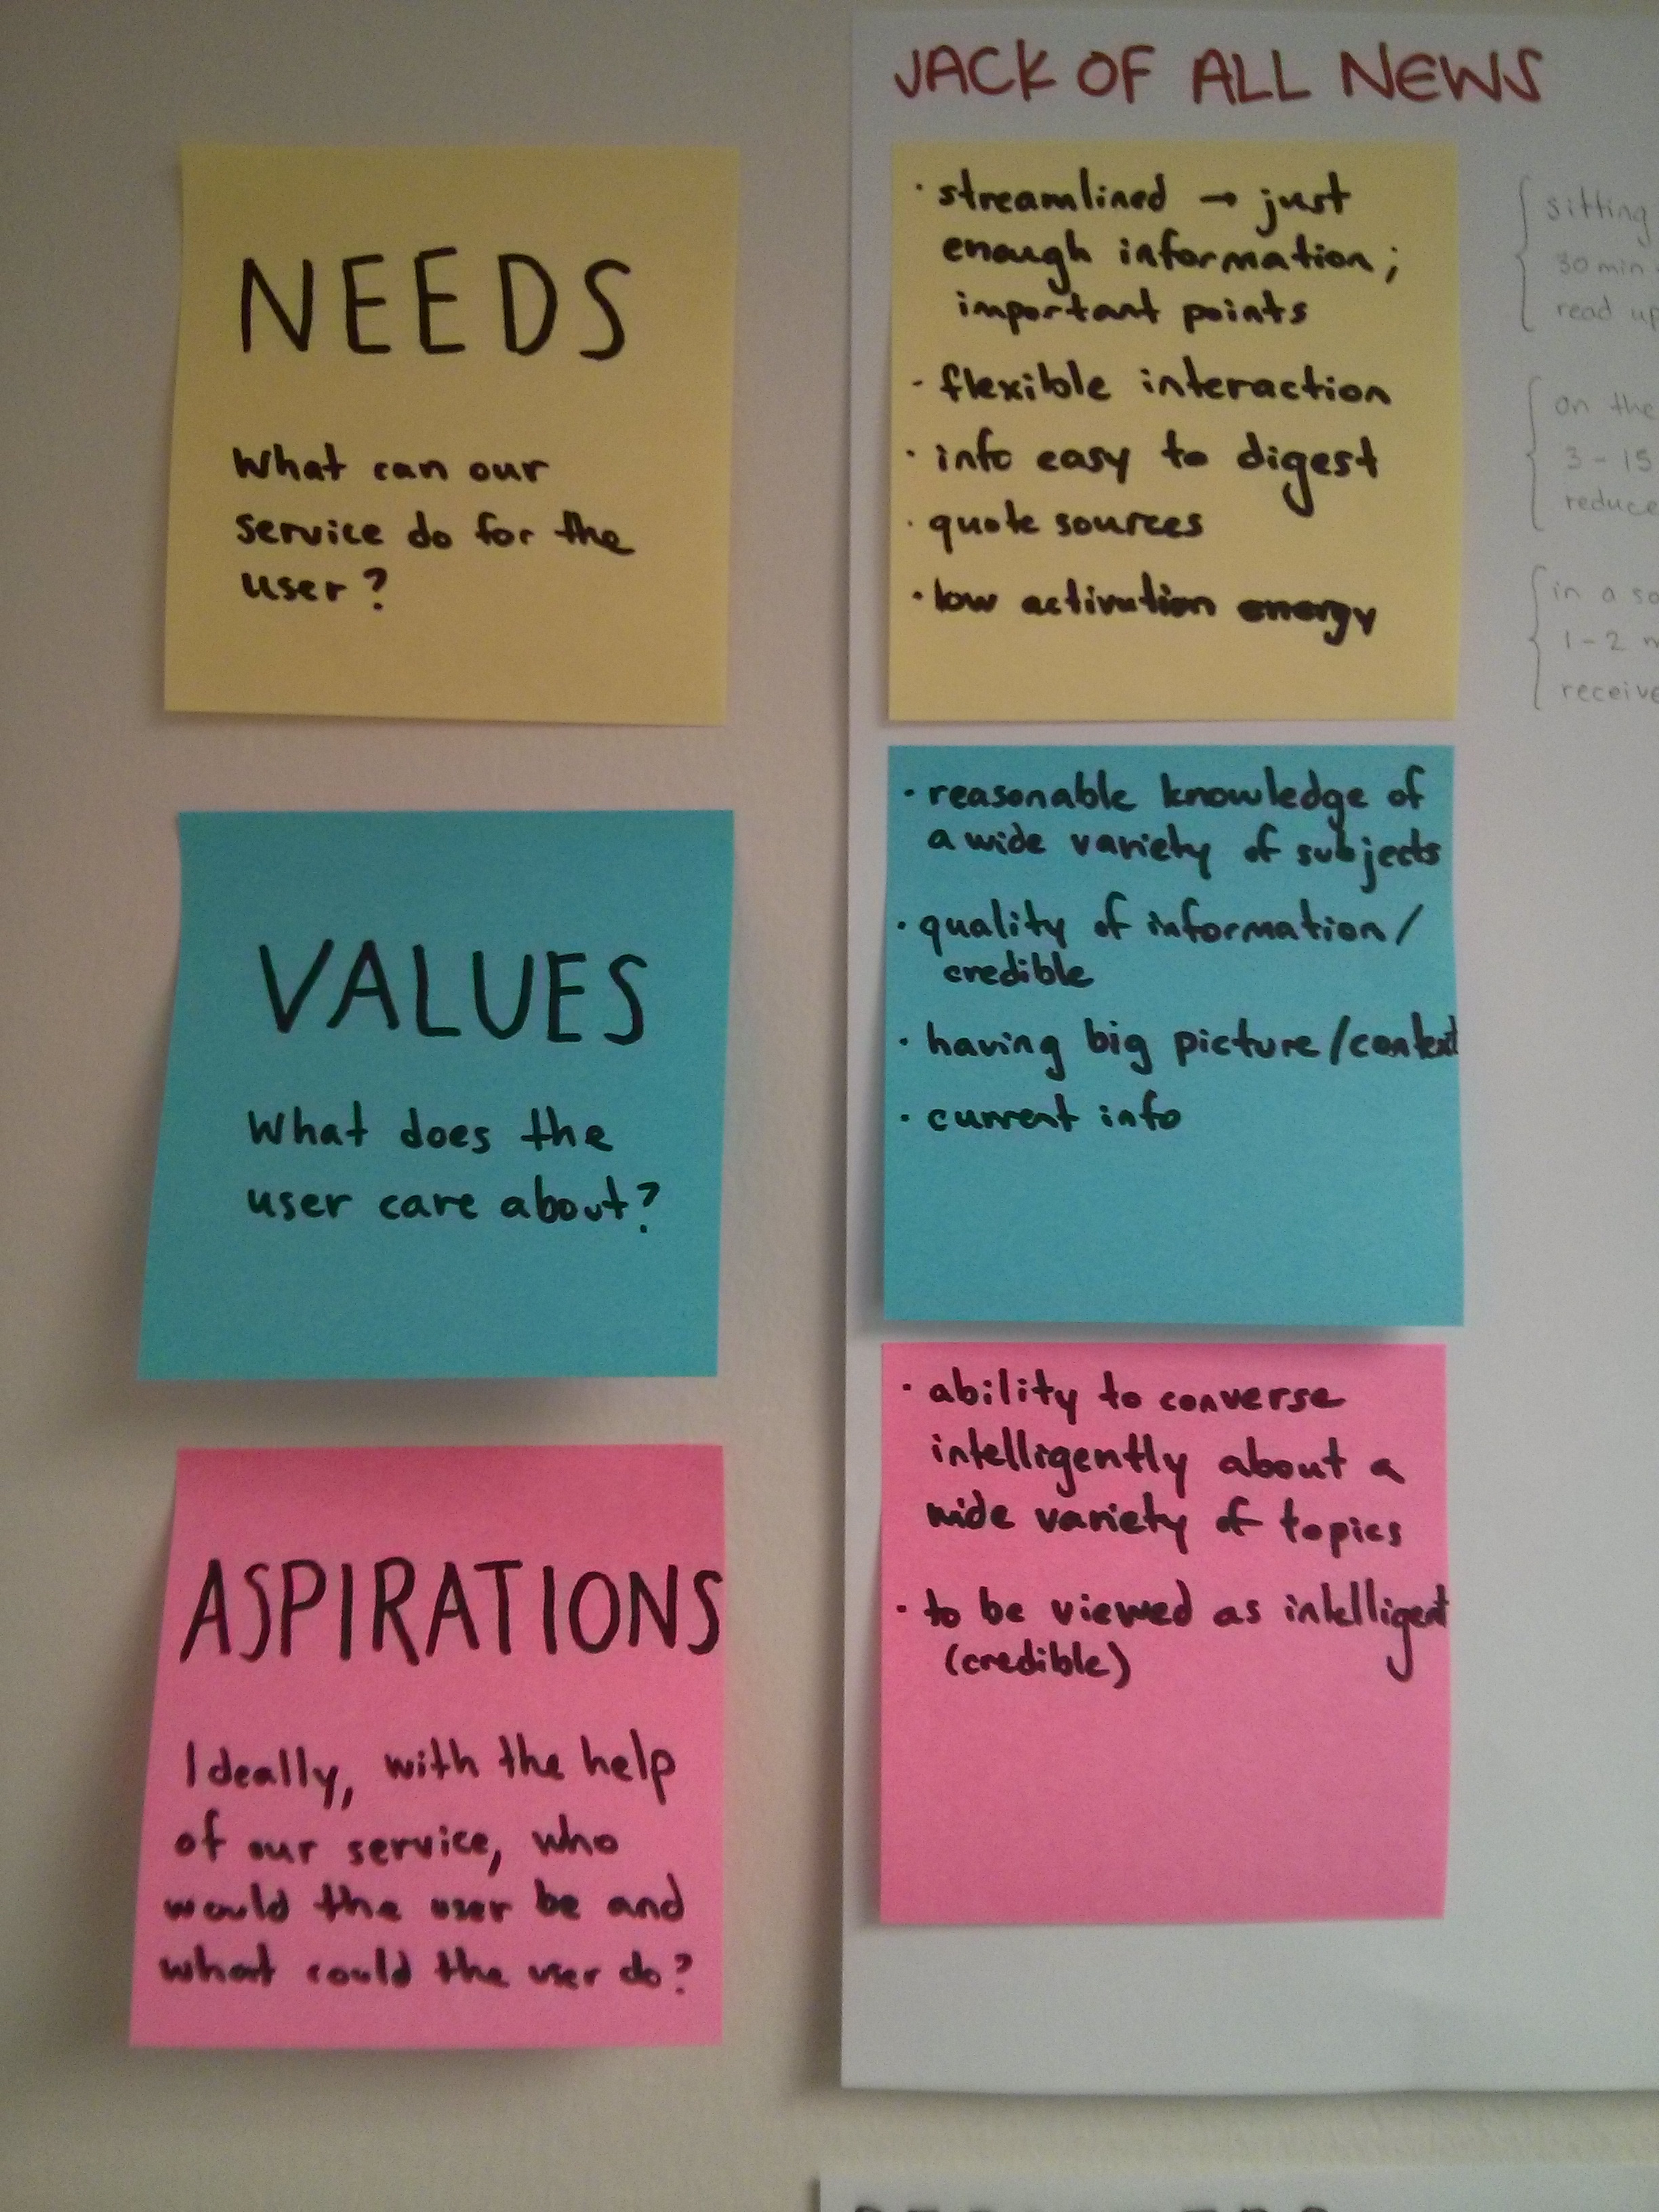 NEEDS
What can our
service do for the
user?
VALUES
What does the
user care about?
ASPIRATIONS
Ideally, with the help
of our service, who
would the user be and
what could the user do?
JACK OF ALL NEWS
· streamlined → just
enough information;
important points
- flexible interaction
· info easy to digest
· quote sources
· low activation energy
· reasonable knowledge of
a wide variety of subjects
· quality of information/
credible
· having big picture/context
· current info
· ability to converse
intelligently about a
wide variety of topics
· to be viewed as intelligent
(credible)
sitting
30 min
read up
on the
3-15
reduce
in a
1-2
receive